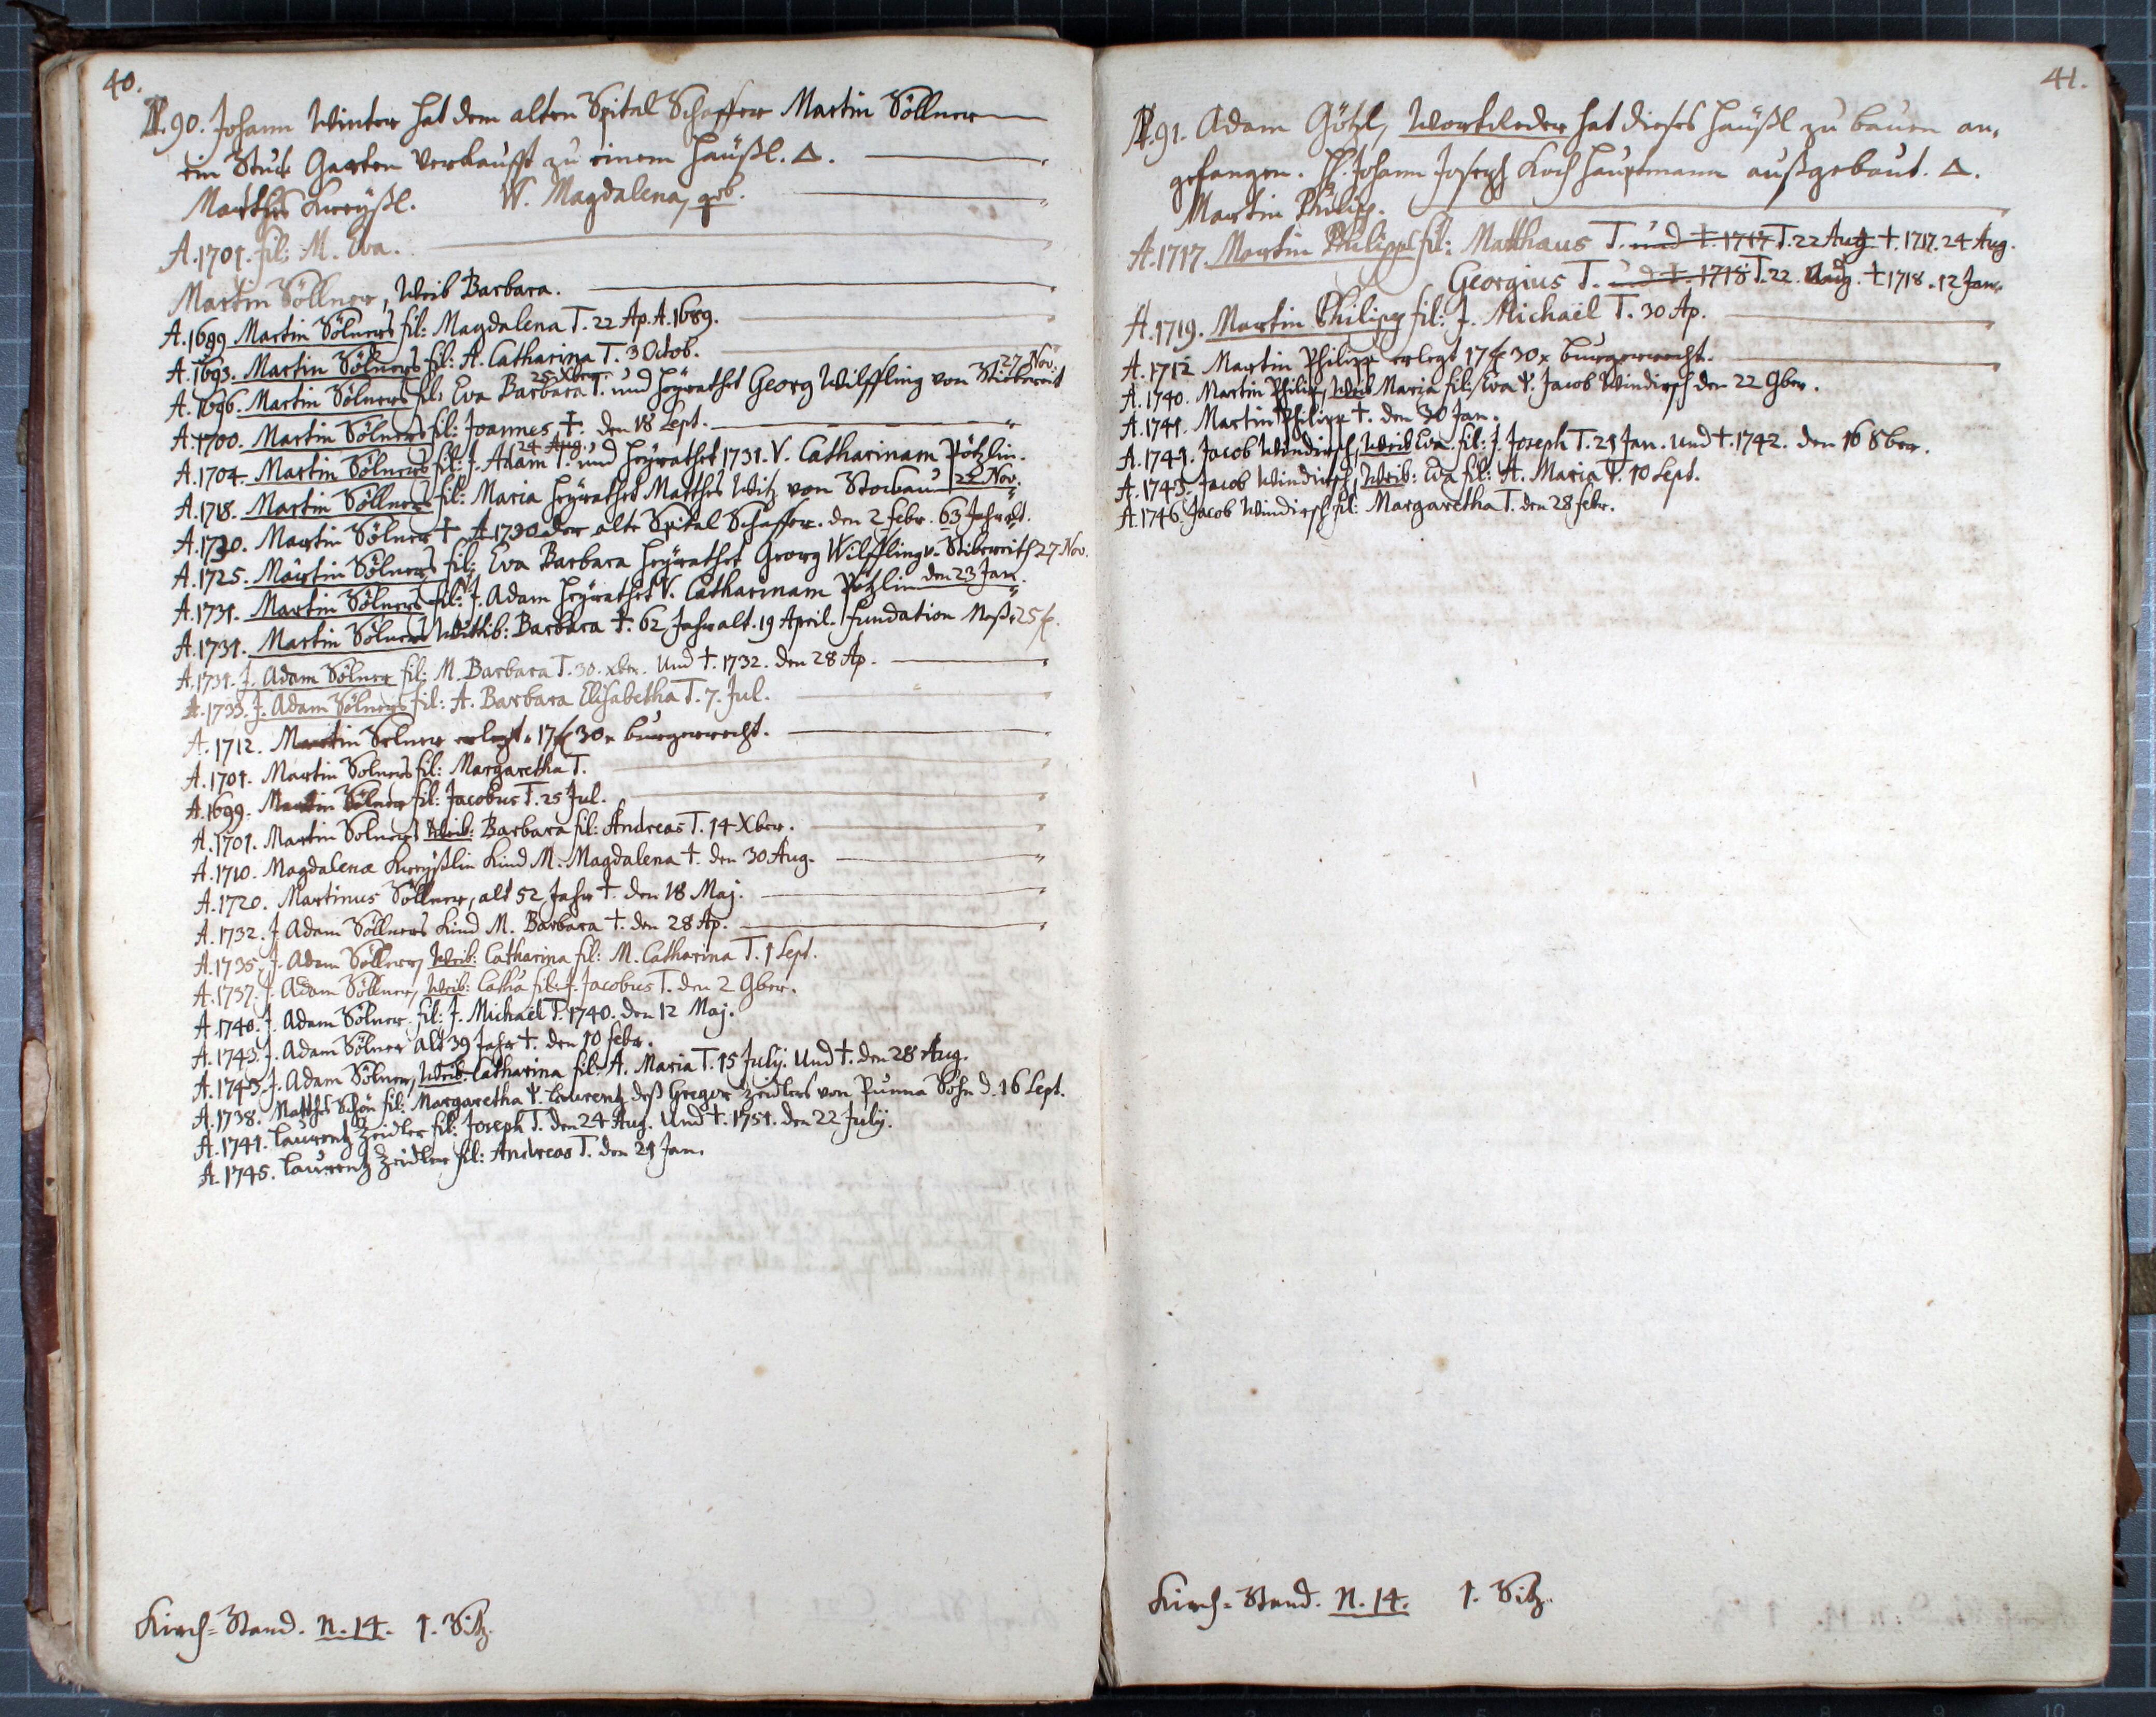 40.
N. 90. Johann Winter hat dem alten Spital Schaffer Martin Söllner
ein Stuck Garten verkaufft zu einem Häußl. Δ.
Matthes Kreÿßl. W. Magdalena, geb.
A. 1701. fil: M. Eva.
Martin Söllner, Weib Barbara.
A. 1699 Martin Sölners fil: Magdalena T. 22 Ap. A. 1689.
A. 1693. Martin Sölners fil: A. Catharina T. 3 Octob.
A. 1696. Martin Sölners fil: Eva Barbara T. 25 Xber und heÿrathet Georg Wilffling von Stibereit 27 Nov:
A. 1700. Martin Sölners fil: Joannes, †. den 18 Sept.
A. 1704. Martin Sölners fil: J. Adam T. 24 Aug. und heÿrathet 1731. V. Catharinam Pötzlin.
A. 1718. Martin Söllners fil: Maria heÿrathet Matthes Witz von Stockau 22 Nov.
A. 1730. Martin Sölner † A. 1730 der alte Spital Schaffer. den 2 febr. 63 Jahr alt.
A. 1725. Martin Sölners fil: Eva Barbara heÿrathet Georg Wilffling v. Stibereith 27 Nov.
A. 1731. Martin Sölners fil: J. Adam heÿrathet V. Catharinam Pötzlin den 23 Jan.
A. 1731. Martin Sölners Wittib: Barbara †. 62 Jahr alt. 19 April. fundation Meß: 25 f.
A. 1731. J. Adam Sölner fil: M. Barbara T. 30. xber. Und †. 1732. den 28 Ap.
A. 1733. J. Adam Sölners fil: A. Barbara Elisabetha T. 7. Jul.
A. 1712. Martin Selner erlegt 17 f 30 x burgerrecht.
A. 1701. Martin Solners fil: Margaretha T.
A. 1699. Martin Sölner fil: Jacobus T. 25 Jul.
A. 1701. Martin Solners Weib: Barbara fil: Andreas T. 14 Xber.
A. 1710. Magdalena Kreÿßlin Kind M. Magdalena †. den 30 Aug.
A. 1720. Martinus Söllner, alt 52 Jahr †. den 18 Maj.
A. 1732. J Adam Söllners Kind M. Barbara †. den 28 Ap.
A. 1735. J. Adam Söllner, Weib: Catharina fil: M. Catharina T. 1 Sept.
A. 1737. J. Adam Söllner, Weib: Catha fil: J. Jacobus T. den 2 9ber.
A. 1740. J. Adam Sölner fil: J. Michaël T. 1740. den 12 Maj.
A. 1743. J. Adam Sölner alt 39 Jahr †. den 10 febr.
A. 1743. J. Adam Sölner, Weib: Catharina fil: A. Maria T. 15 Julÿ. Und †. den 28 Aug.
A. 1738. Matthes Schön fil: Margaretha Laurentz deß Gregor Zeidlers von Punna Sohn d. 16 Sept.
A. 1741. Laurentz Zeidler fil: Joseph T. den 24 Aug. Und †. 1751. den 22 Julÿ.
A. 1745. Laurentz Zeidler fil: Andreas T. den 21 Jan.
Kirch-Stand. N. 14. 1. Sitz.
41.
N. 91. Adam Götzl, Workleder hat dieses Häußl zu bauen an-
gefangen. H. Johann Joseph Koch Hauptmann außgebaut. Δ.
Martin Philipp.
A. 1717. Martin Philipps fil: Matthaus T. und †. 1717 T. 22 Aug †. 1717. 24 Aug.
Georgius T. und †. 1718 T. 22. Aug. † 1718. 12 Jan.
A. 1719. Martin Philipp fil: J. Michaël T. 30 Ap.
A. 1712 Martin Philipp erlegt 17 f 30 x burgerrecht.
A. 1740. Martin Philipp, Weib Maria fil: Eva Jacob Windirsch den 22 9ber.
A. 1741. Martin Philipp †. den 30 Jan.
A. 1741. Jacob Windirsch, Weib Eva fil: J. Joseph T. 21 Jan. Und †. 1742. den 16 8ber.
A. 1743. Jacob Windirsch, Weib: Eva fil: A. Maria T. 10 Sept.
A. 1746. Jacob Windirsch fil: Margaretha T. den 28 febr.
Kirch-Stand. N. 14. 1. Sitz.